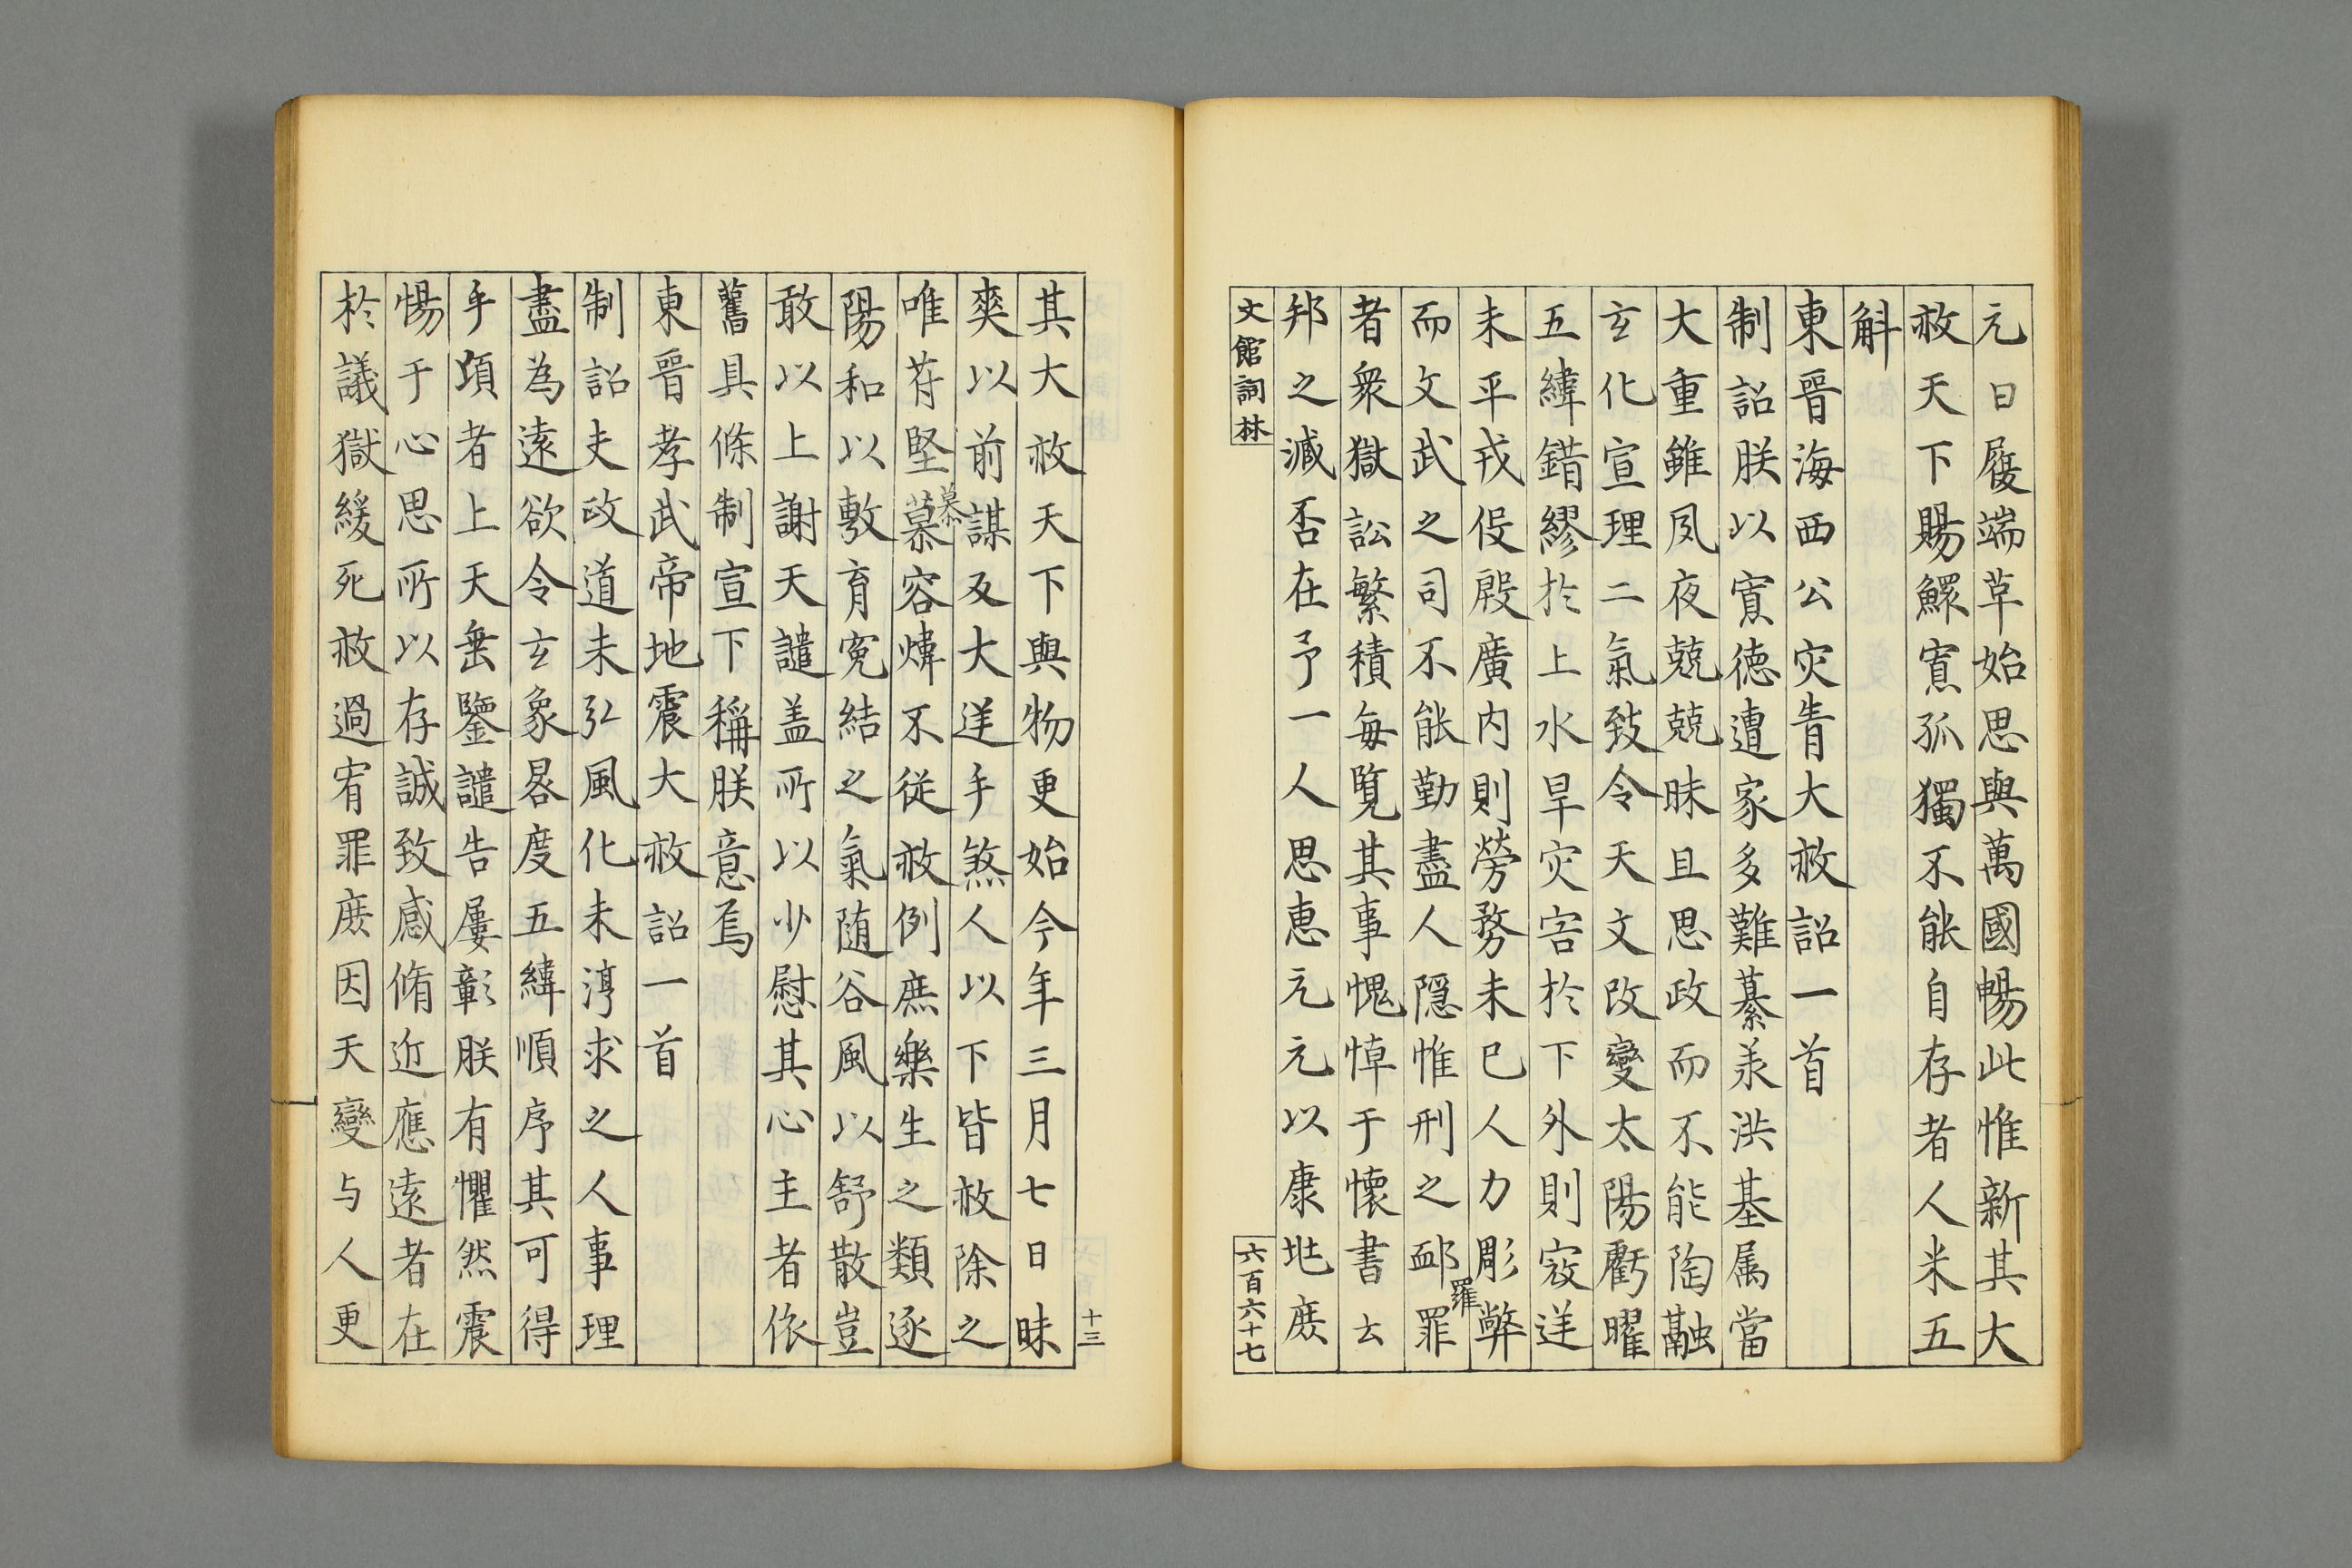 元日履端草始思與萬國暢此惟新其大
赦天下賜鰥寡孤獨不能自存者人米五
斛
東晉海西公灾眚大赦詔一首
制詔朕以寡德遭家多難纂羕洪基属當
大重雖夙夜兢兢昧旦思政而不能陶融
玄化宣理二氣致令天文改變太陽虧曜
五緯錯繆於上水旱灾害於下外則寇逆
未平戎伇殷廣内則勞務未已人力彫弊
而文武之司不能勤盡人隱惟刑之邺罪羅
者衆獄訟繁積每覽其事愧悼于懷書云
邦之滅否在予一人思惠元元以康兆庶
文館詞林
六百六十七
十三
其大赦天下與物更始今年三月七日昧
爽以前謀反大逆手煞人以下皆赦除之
唯苻堅慕慕容煒不從赦例庶樂生之類逐
陽和以敷育寃結之氣随谷風以舒散豈
敢以上謝天譴盖所以少慰其心主者依
舊具條制宣下稱朕意焉
東晉孝武帝地震大赦詔一首
制詔夫政道未弘風化未淳求之人事理
盡為遠欲令玄象晷度五緯順序其可得
乎頃者上天垂鑒譴告屢彰朕有懼然震
惕于心思所以存誠致感脩近應遠者在
於議獄緩死赦過宥罪庶因天變与人更